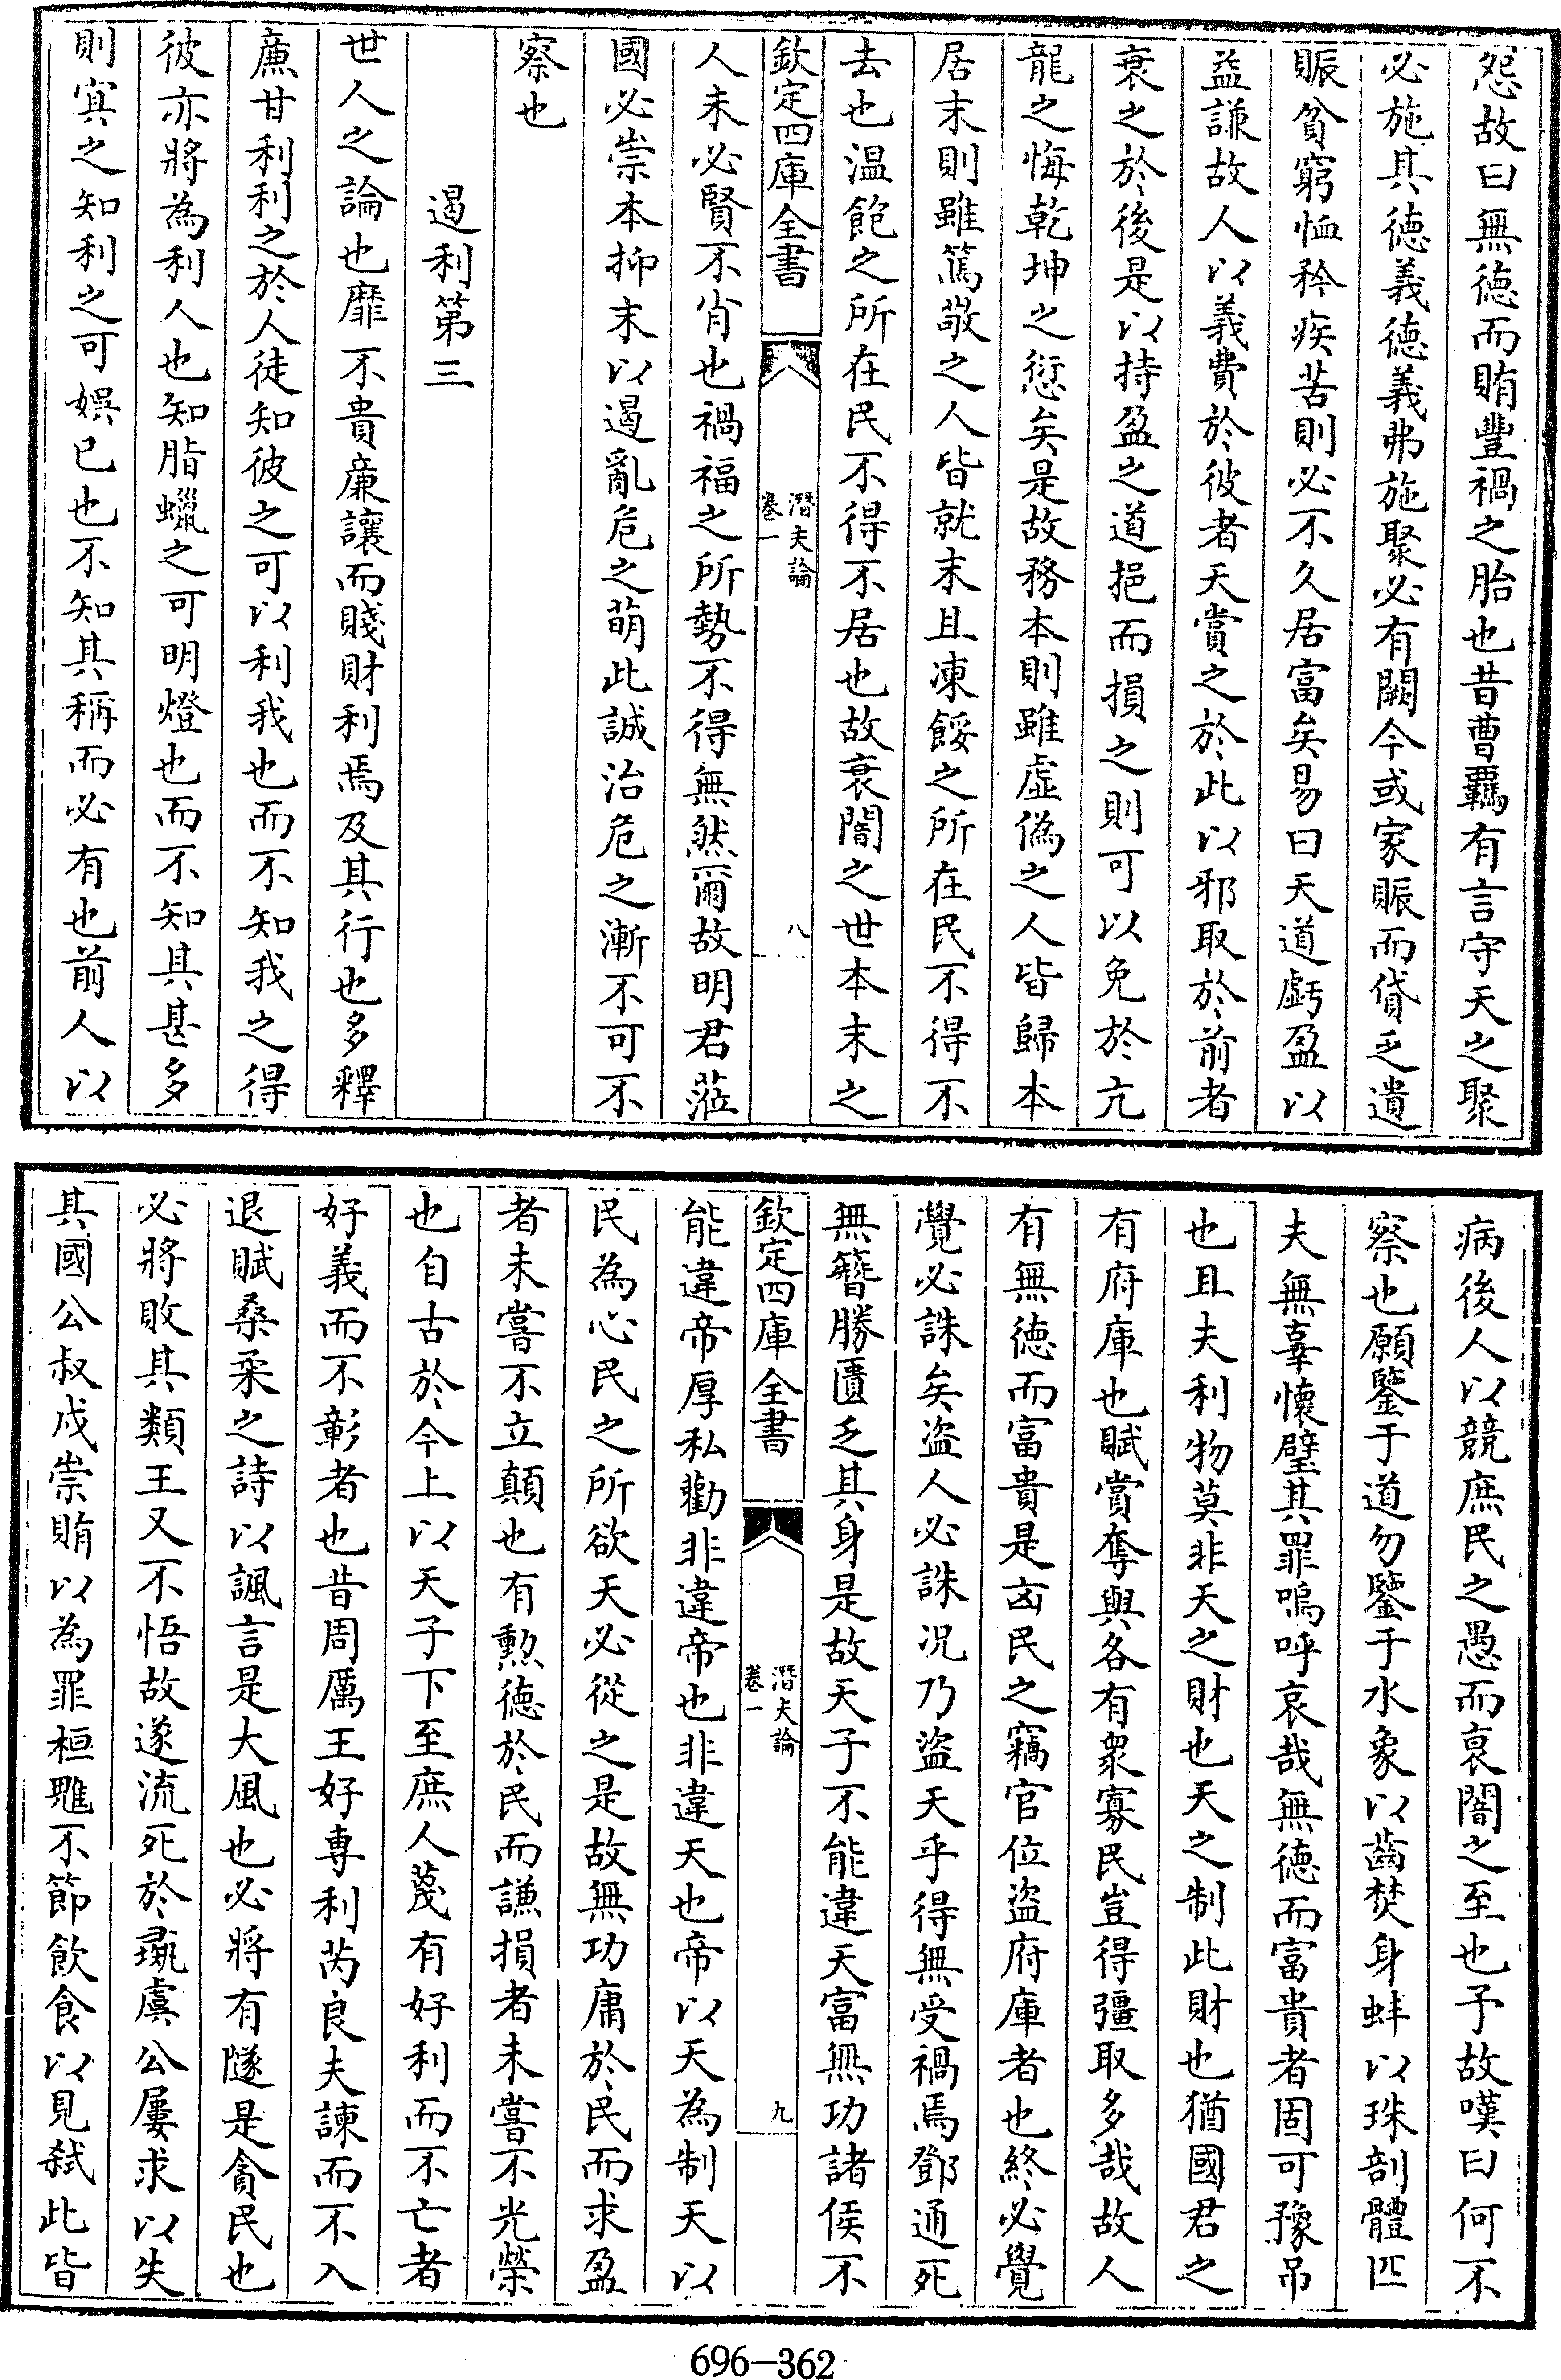 怨故曰無徳而賄豐禍之胎也昔曹羈有言守天之聚
必施其徳義徳義弗施聚必有闕今或家賑而貸乏遺
賑貧窮恤矜疾苦則必不久居富矣易曰天道虧盈以
益謙故人以義費於彼者天賞之於此以邪取於前者
衰之於後是以持盈之道挹而損之則可以免於亢
龍之悔乾坤之愆矣是故務本則雖虛偽之人皆歸本
居末則雖篤敬之人皆就末且凍餒之所在民不得不
去也温飽之所在民不得不居也故衰闇之世本末之
欽定四庫全書
潛夫論
卷一
八
人未必賢不肖也禍福之所勢不得無然爾故明君蒞
國必崇本抑末以遏亂危之萌此誠治危之漸不可不
察也
遏利第三
世人之論也靡不貴廉讓而賤財利焉及其行也多釋
廉甘利利之於人徒知彼之可以利我也而不知我之得
彼亦將為利人也知脂蠟之可明燈也而不知其甚多
則寘之知利之可娯已也不知其稱而必有也前人以
病後人以競庶民之愚而衰闇之至也予故嘆曰何不
察也願鑒于道勿鑒于水象以齒焚身蚌以珠剖體匹
夫無辜懷璧其罪嗚呼哀哉無徳而富貴者固可豫吊
也且夫利物莫非天之財也天之制此財也猶國君之
有府庫也賦賞奪與各有衆寡民豈得彊取多哉故人
有無徳而富貴是凶民之竊官位盜府庫者也終必覺
覺必誅矣盜人必誅況乃盜天乎得無受禍焉鄧通死
無簪勝匱乏其身是故天子不能違天富無功諸侯不
欽定四庫全書
潛夫論
卷一
九
能違帝厚私勸非違帝也非違天也帝以天為制天以
民為心民之所欲天必從之是故無功庸於民而求盈
者未嘗不立顛也有勲徳於民而謙損者未嘗不光榮
也自古於今上以天子下至庶人蔑有好利而不亡者
好義而不彰者也昔周厲王好專利芮良夫諫而不入
退賦桑柔之詩以諷言是大風也必將有隧是貪民也
必將敗其類王又不悟故遂流死於彘虞公屢求以失
其國公叔戍崇賄以為罪桓魋不節飲食以見弑此皆
696-362